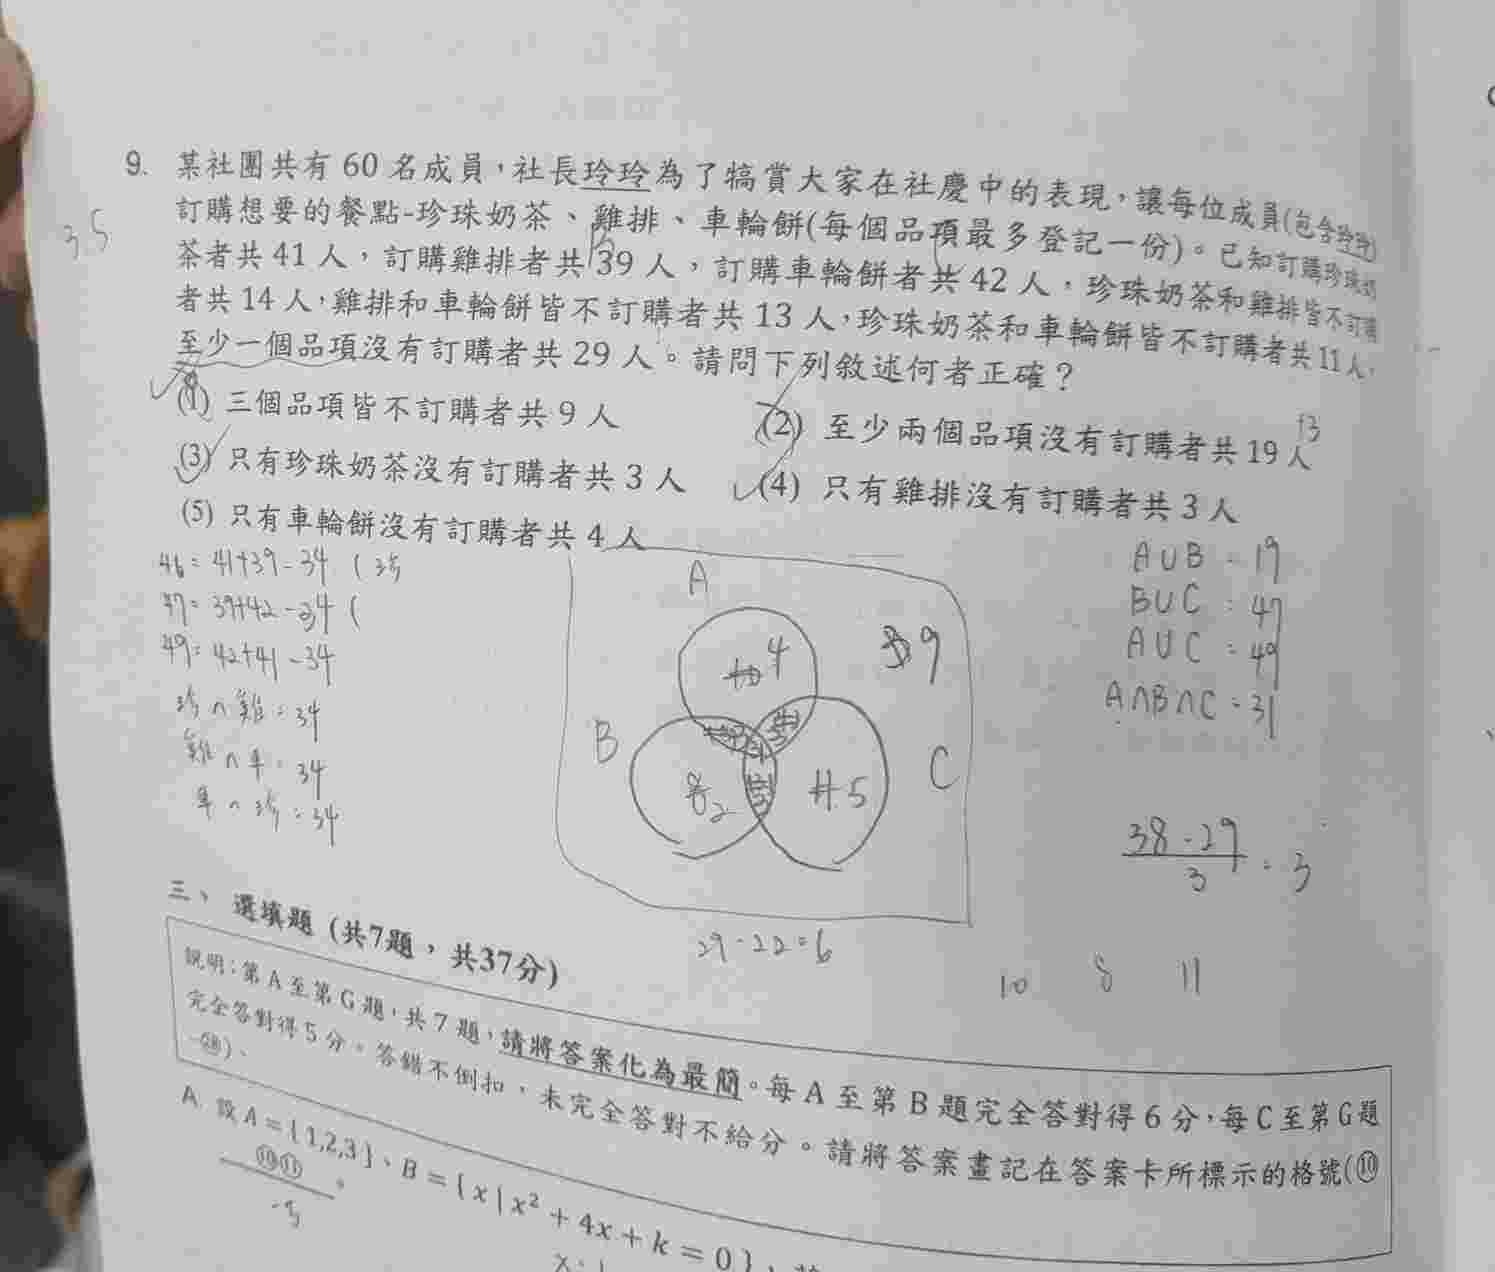 9. 某社團共有 60 名成員，社長玲玲為了犒賞大家在社慶中的表現，讓每位成員(包含玲玲)
35
訂購想要的餐點-珍珠奶茶、雞排、車輪餅(每個品項最多登記一份)。已知訂購珍珠奶
茶者共 41 人，訂購雞排者共 39 人，訂購車輪餅者共 42 人，珍珠奶茶和雞排皆不訂購
者共 14 人，雞排和車輪餅皆不訂購者共 13 人，珍珠奶茶和車輪餅皆不訂購者共 11 人，
至少一個品項沒有訂購者共 29 人。請問下列敘述何者正確？
(1) 三個品項皆不訂購者共 9 人
(2) 至少兩個品項沒有訂購者共 19 人
13
(3) 只有珍珠奶茶沒有訂購者共 3 人
(4) 只有雞排沒有訂購者共 3 人
(5) 只有車輪餅沒有訂購者共 4 人
46 = 41+39-34 ( 珍
47 = 39+42-34 (
49 = 42+41-34
珍∩雞 = 34
雞∩車 = 34
車∩珍 = 34
A
4
9
B
2
C
5
A∪B = 19
B∪C = 47
A∪C = 49
A∩B∩C = 31
38-29
3
= 3
29-22=6
10 8 11
三、選填題 (共7題，共37分)
說明：第 A 至第 G 題，共 7 題，請將答案化為最簡。每 A 至第 B 題完全答對得 6 分，每 C 至第 G 題
完全答對得 5 分。答錯不倒扣，未完全答對不給分。請將答案畫記在答案卡所標示的格號(⑩
-㉘)。
A. 設 A = { 1,2,3 }、B = { x | x² + 4x + k = 0 }，
⑩⑪
。
-5